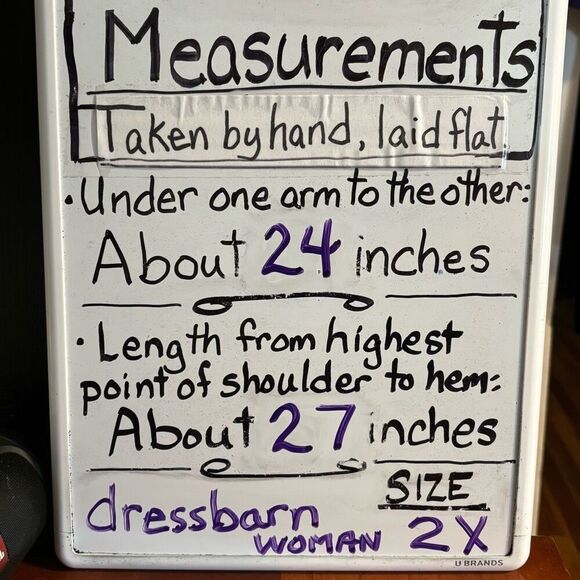 Measurements
Taken by hand, laid flat
• Under one arm to the other:
About 24 inches
• Length from highest
point of shoulder to hem:
About 27 inches
SIZE
dressbarn
WOMAN 2X
U BRANDS